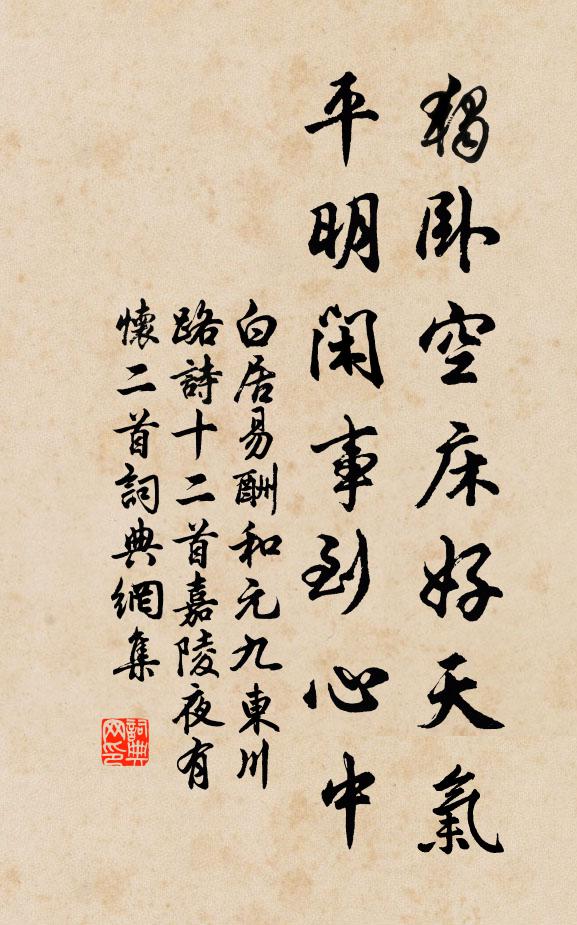 獨卧空床好天氣
平明閑事到心中
白居易酬和元九東川
路詩十二首嘉陵夜有
懷二首詞典網集
詞典网印